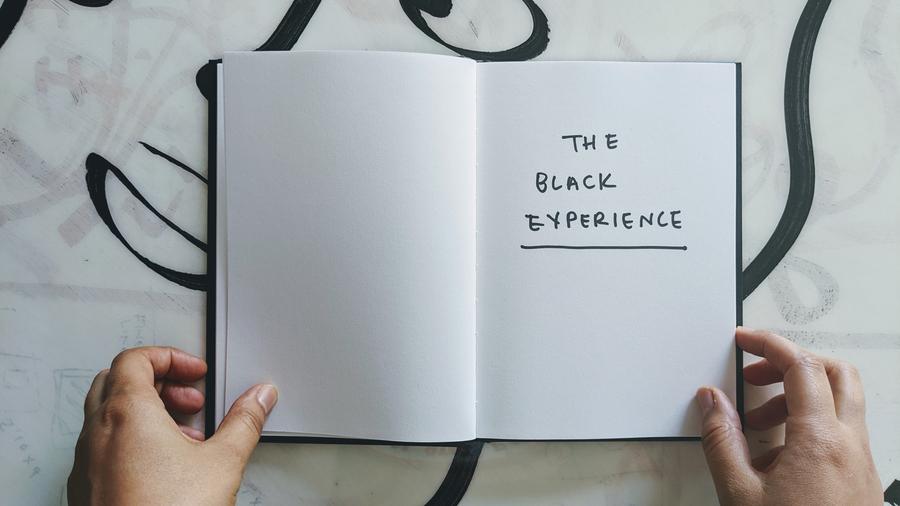 THE
BLACK
EXPERIENCE